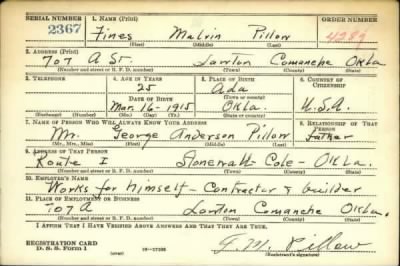 SERIAL NUMBER 1. NAME (Print) ORDER NUMBER
2367 Fines Malvin Pillow 4289
(First) (Middle) (Last)
2. ADDRESS (Print)
707 A St. Lawton Comanche Okla
(Number and street or R. F. D. number) (Town) (County) (State)
3. TELEPHONE 4. AGE IN YEARS 5. PLACE OF BIRTH 6. COUNTRY OF CITIZENSHIP
25 Ada
DATE OF BIRTH (Town or county)
Mar. 16 - 1915 Okla. U.S.A.
(Exchange) (Number) (Mo.) (Day) (Yr.) (State or country)
7. NAME OF PERSON WHO WILL ALWAYS KNOW YOUR ADDRESS 8. RELATIONSHIP OF THAT PERSON
Mr. George Anderson Pillow Father
(Mr., Mrs., Miss) (First) (Middle) (Last)
9. ADDRESS OF THAT PERSON
Route 1 Stonewall - Cole - Okla.
(Number and street or R. F. D. number) (Town) (County) (State)
10. EMPLOYER'S NAME
Works for himself - Contractor & builder
11. PLACE OF EMPLOYMENT OR BUSINESS
707 A Lawton Comanche Okla.
(Number and street or R. F. D. number) (Town) (County) (State)
I AFFIRM THAT I HAVE VERIFIED ABOVE ANSWERS AND THAT THEY ARE TRUE.
REGISTRATION CARD
D. S. S. Form 1 (over) F. M. Pillow
(Registrant's signature)